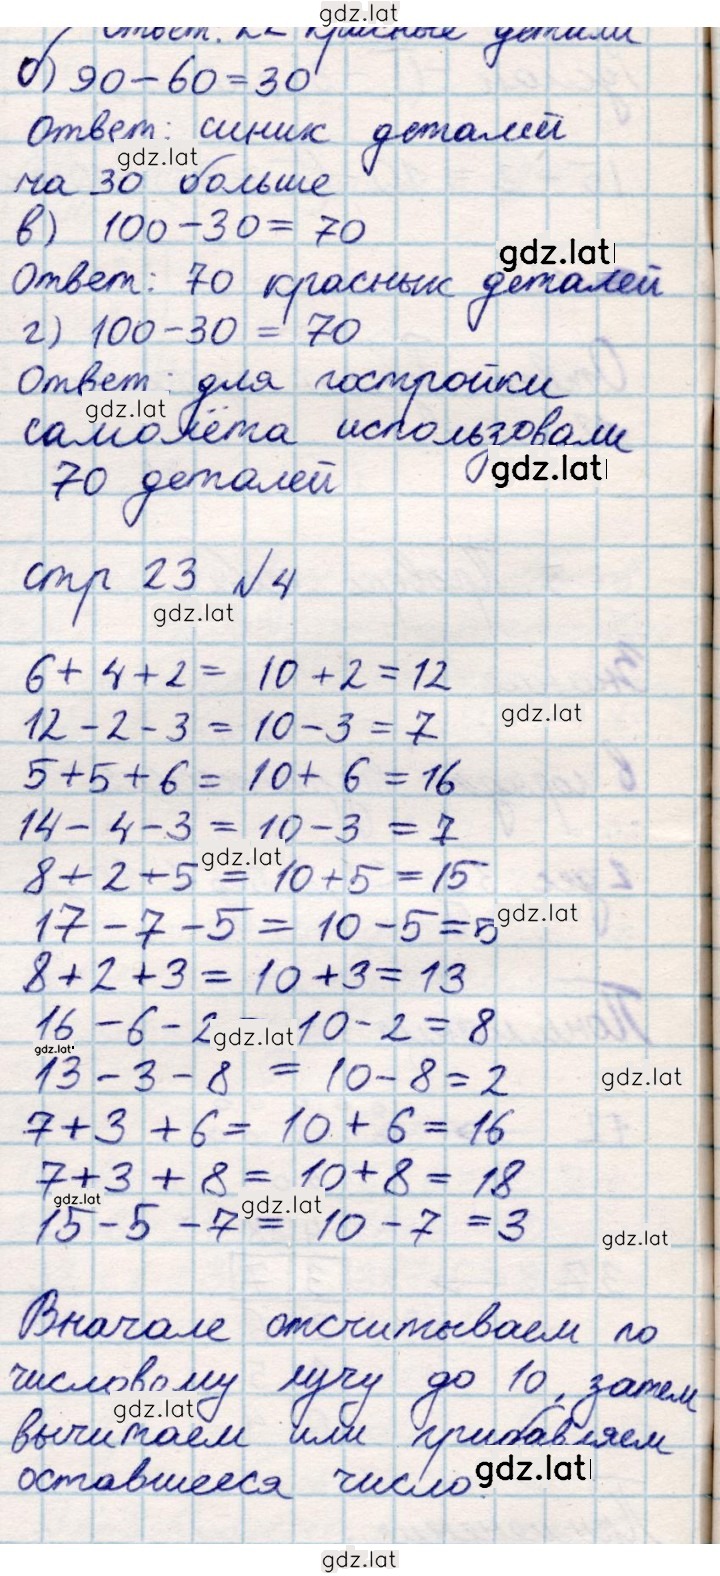 gdz.lat
Ответ: 22 красные детали
б) 90-60=30
Ответ: синих деталей
gdz.lat
на 30 больше
в) 100-30=70
gdz.lat
Ответ: 70 красных деталей
г) 100-30=70
Ответ: для постройки
gdz.lat
самолёта использовали
gdz.lat
70 деталей
стр 23 №4
gdz.lat
6+4+2=10+2=12
12-2-3=10-3=7
gdz.lat
5+5+6=10+6=16
14-4-3=10-3=7
gdz.lat
8+2+5=10+5=15
17-7-5=10-5=5
gdz.lat
8+2+3=10+3=13
16-6-2=10-2=8
gdz.lat
gdz.lat
13-3-8=10-8=2
gdz.lat
7+3+6=10+6=16
7+3+8=10+8=18
gdz.lat
gdz.lat
15-5-7=10-7=3
gdz.lat
Вначале отсчитываем по
числовому лучу до 10, затем
gdz.lat
вычитаем или прибавляем
оставшееся число.
gdz.lat
gdz.lat